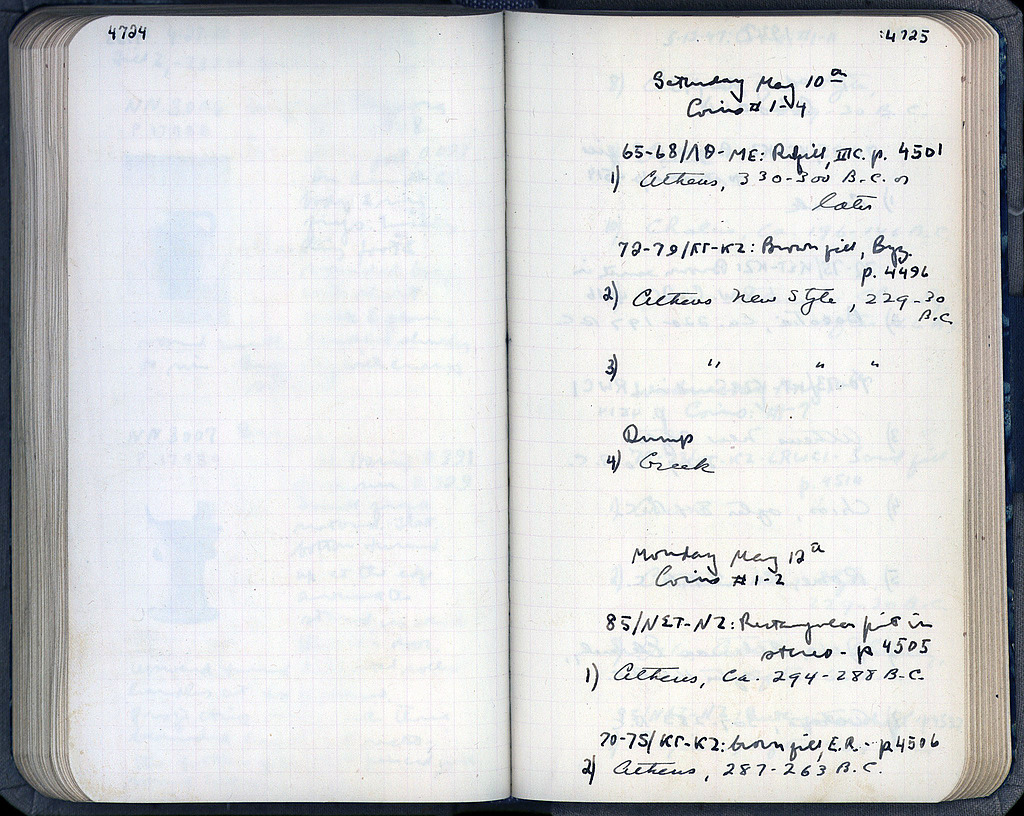 4724
4725
Saturday May 10th
Coins # 1-4
65-68/ΛΘ-ΜΕ: Refill, III C. p. 4501
1) Athens, 330-300 B.C. or
later
72-79/ΚΓ-ΚΖ: Brown fill, Byz.
p. 4496
2) Athens New Style, 229-30
B.C.
3) " " "
Dump
4) Greek
Monday May 12th
Coins # 1-2
85/ΝΣΤ-ΝΖ: Rectangular pit in
stereo - p 4505
1) Athens, Ca. 294-288 B.C.
70-75/ΚΓ-ΚΖ: brown fill, E.R. - p 4506
2) Athens, 287-263 B.C.